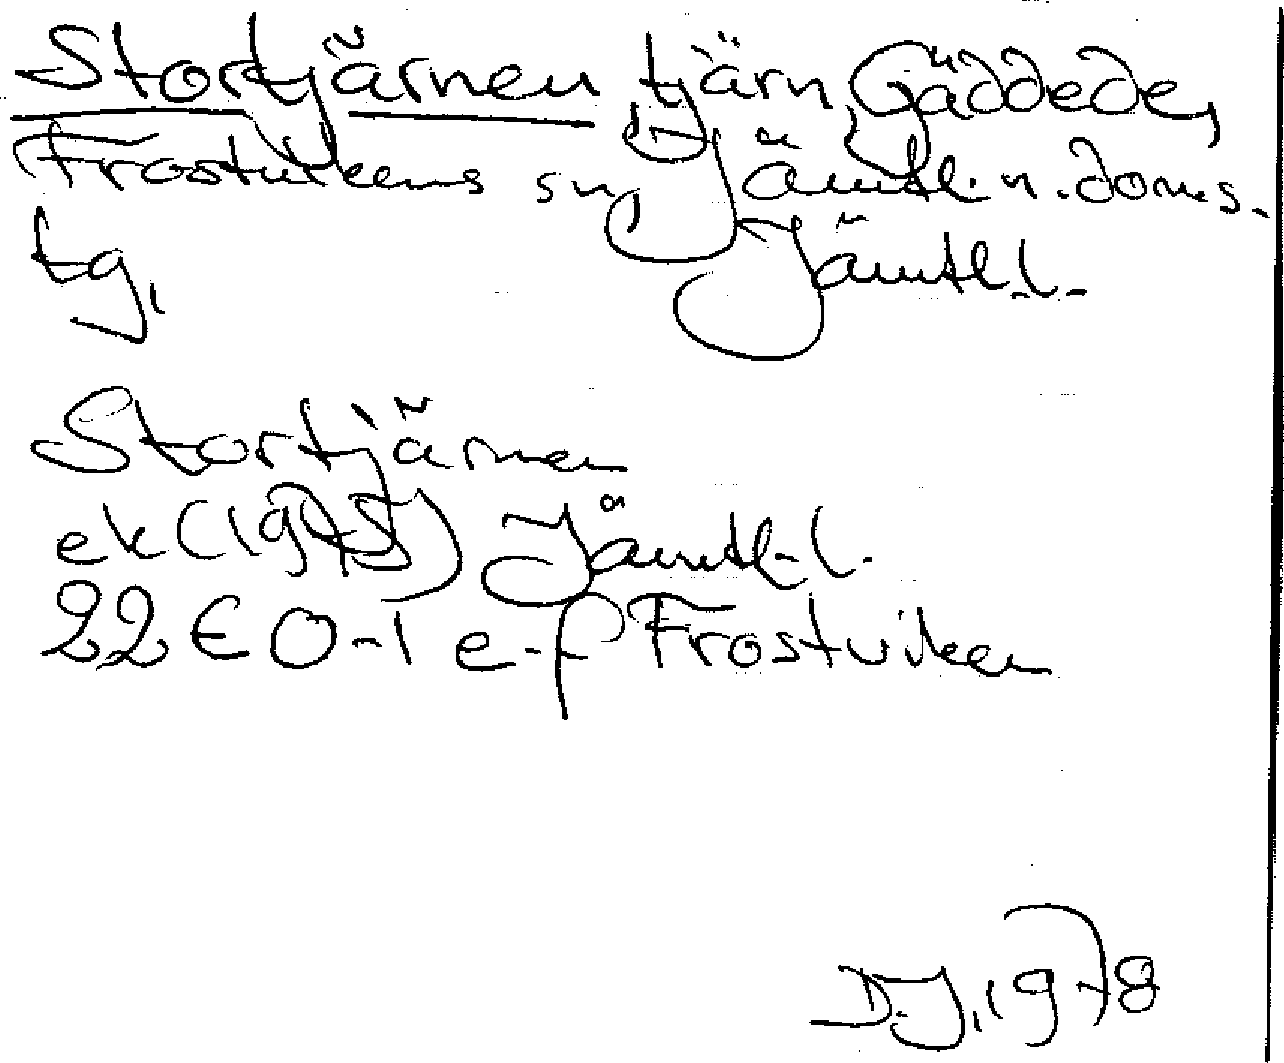 Stortjärnen tjärn, Gäddede,
Frostvikens sn, Jämtl. n. doms.
tg,    Jämtl. l.
Stortjärnen
ek (1975) Jämtl. l.
22E 0-1 e-f Frostviken
D.J. 1978